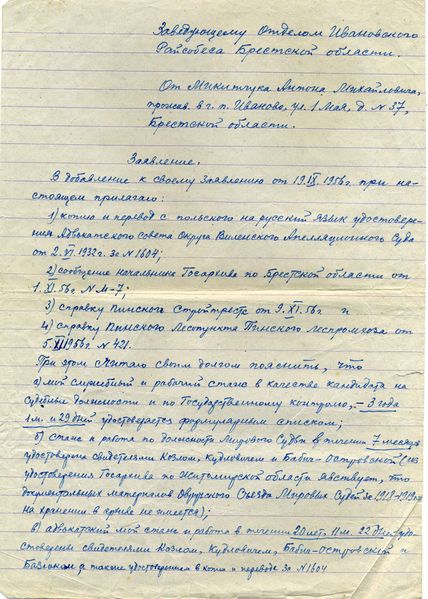 Заведующему Отделом Ивановского
Райсобеса Брестской области.
От Микитчука Антона Михайловича,
прожив. в г. п. Иваново, ул. 1 Мая, д. N 37,
Брестской области.
Заявление.
В добавление к своему Заявлению от 19.IX.1956 г. при на-
стоящем прилагаю:
1) копию и перевод с польского на русский язык удостовере-
ния Адвокатского Совета Округа Виленского Апелляционного Суда
от 2.VI.1932 г. за N 1604;
2) сообщение начальника Госархива по Брестской области от
1.XI.56 г. N М-7;
3) справку Пинского Стройтреста от 9.XI.56 г и
4) справку Пинского Лесопункта Пинского леспромхоза от
1956 г. N 421.
При этом считаю своим долгом пояснить, что
а) мой служебный и рабочий стаж в качестве кандидата на
судебные должности и по Государственному контролю, - 3 года
1 м. и 29 дней удостоверяется формулярным списком;
б) стаж и работа по должности Мирового Судьи в течении 7 месяцев
удостоверены свидетелями Козлом, Кудловичем и Бабич-Островской (из
удостоверения Госархива по Житомирской области явствует, что
документальных материалов Овручского Съезда Мировых Судей за 1918-1919 г.г.
на хранении в архиве не имеется);
в) адвокатский мой стаж и работа в течении 20 лет, 11 м. 22 дней удо-
стоверены свидетелями Козлом, Кудловичем, Бабич-Островской и
а также удостоверением в копии и переводе за N 1604